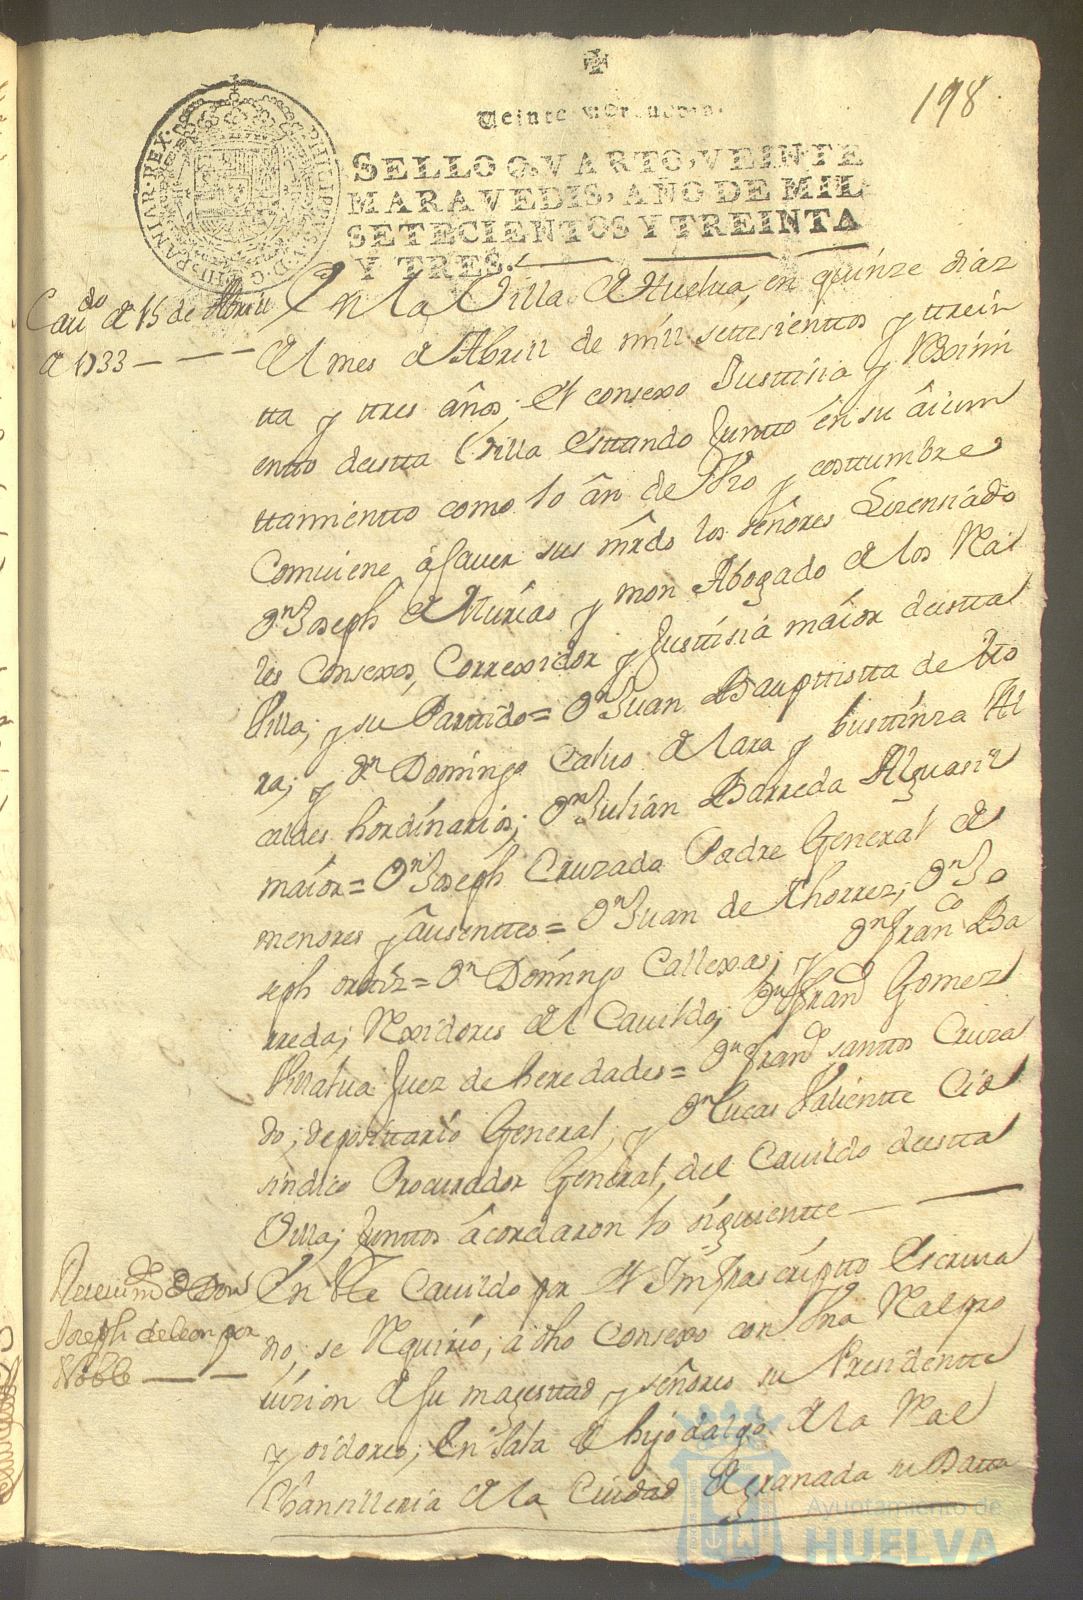 198
Veinte maravedis.
SELLO QVARTO, VEINTE
MARAVEDIS, AÑO DE MIL
SETECIENTOS Y TREINTA
Y TRES.
PHILIPPUS V D G HISPANIAR REX
Caudo de 15 de Abrill
de 1733
En la Villa de Huelua, en quinze dias
del mes de Abrill de mill settesienttos y ttrein
tta y ttres años; el consexo Justtisia y Reximi
entto destta Villa esttando Juntto en su aium
ttamientto como lo an de Vso y costtumbre
Comuiene a sauer sus mrds los señores Lizensiado
Dn Joseph de Nurias y mon Abogado de los Rea
les Consexos, Correxidor y Justtisia maior destta
Villa; y su Parttido= Dn Juan Baupttistta de
ra; y Dn Domingo Caluo de lara y busttinza Al
caldes hordinarios; Dn Julian Barreda Alguasil
maior= Dn Joseph Cruzado Padre General de
menores y ausenttes= Dn Juan de Thorres; Dn Jo
seph orttiz= Dn Domingo Callexas; y Dn Franco Ba
rreda; Rexidores del Cauildo; Dn Franco Gomez
Hiralua Juez de heredades= Dn Franco santtos Cruza
do; deposittario General; y Dn Lucas Valientte Cid
sindico Procurador General, del Cauildo destta
Villa; Junttos acordaron lo siguientte
Reseuimto de Don
Joseph de leon por
Noble
En Este Cauildo por el Imfrascriptto Escriua
no, se Requirio, a dho Consexo con Vna Real pro
uision de su magesttad y señores su Presidentte
y oidores; En Sala de hijodalgo de la Real
Chansilleria de la Ciudad de granada su Datta
Ayuntamiento de
HUELVA